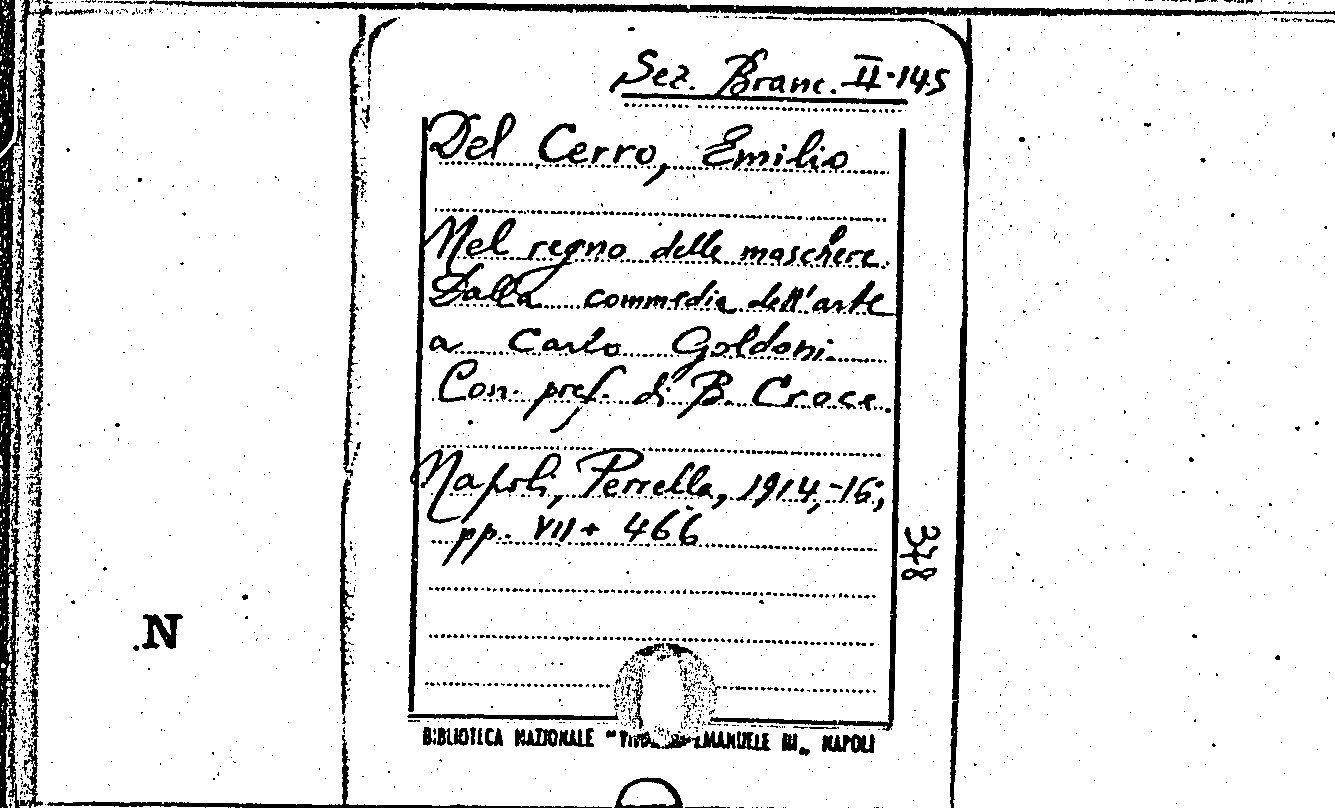 Sez. Branc. II-145
Del Cerro, Emilio
Nel regno delle maschere.
Dalla commedia dell'arte
a Carlo Goldoni.
Con pref. di B. Croce.
Napoli, Perrella, 1914,-16;
pp. VII + 466
378
N
BIBLIOTECA NAZIONALE " EMANUELE III„ NAPOLI